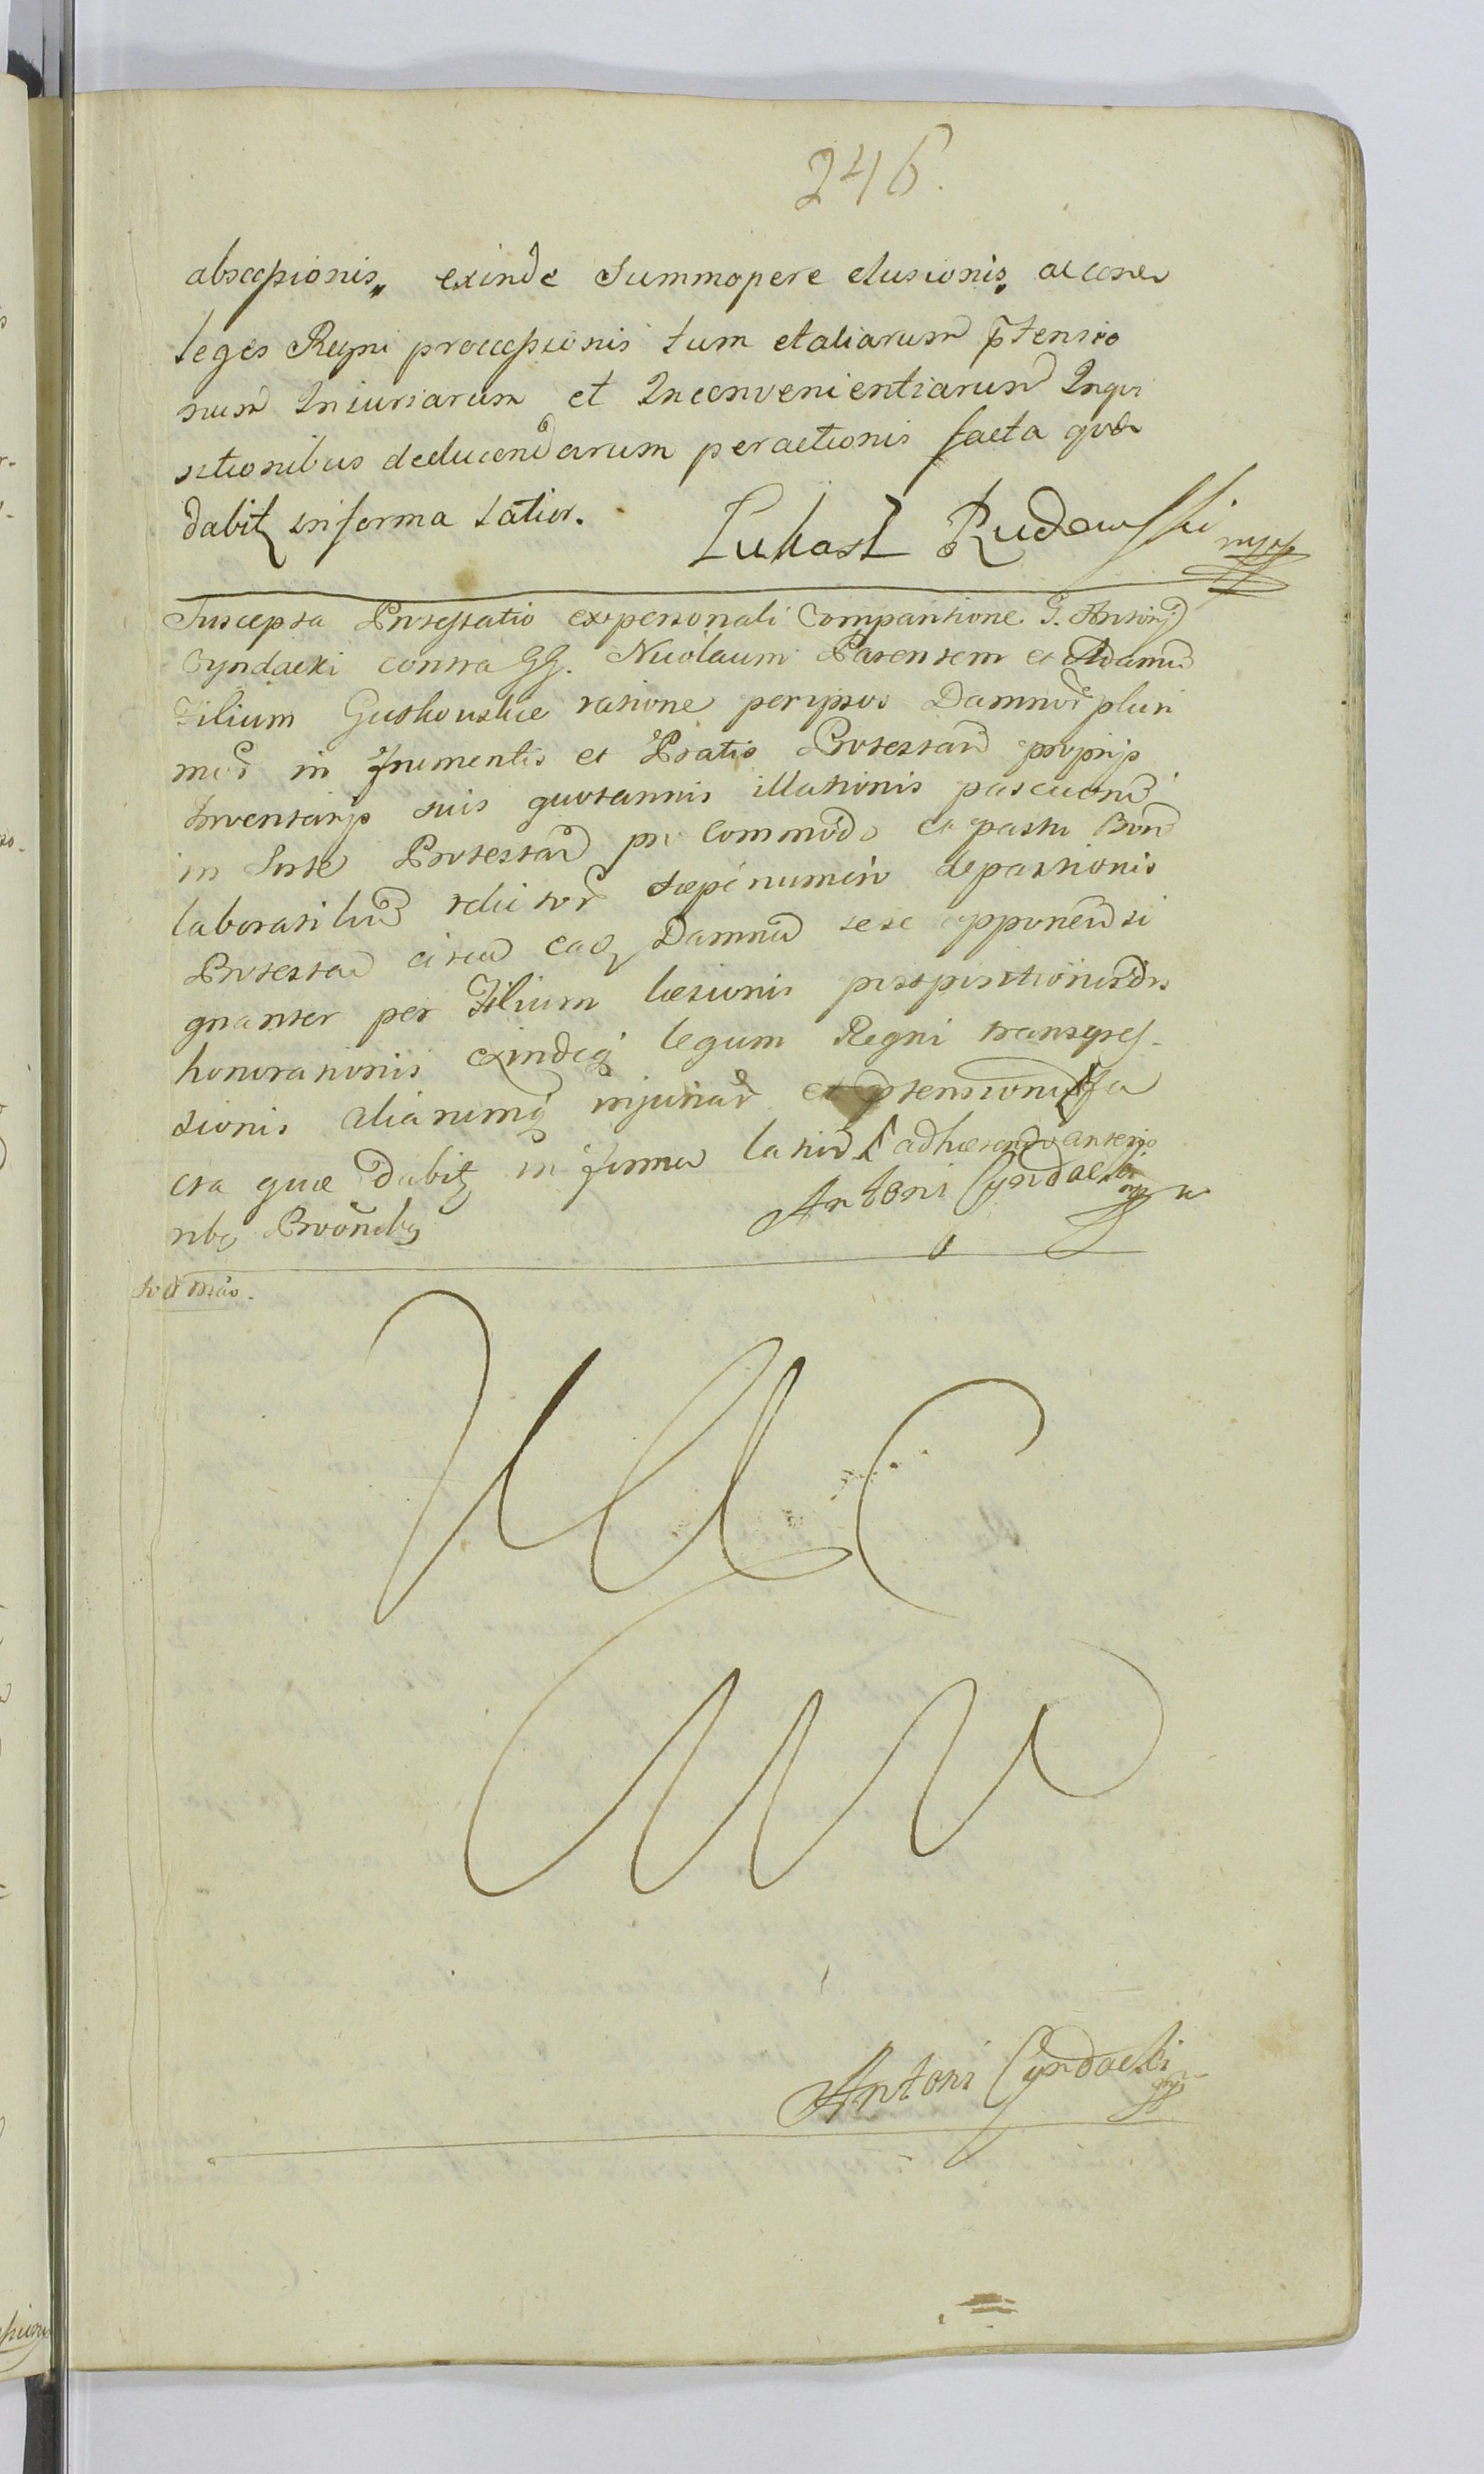 246.
abscessionis„ exinde Summopere elusionis„ ac contra
leges Regni processionis tum et aliarum p̄tensio
num Iniuriarum et Inconvenientiarum Inqui
sitionibus deducendarum peractionis facta quæ
dabitꝫ in forma latior.
Lukasz Rudowski mpp
Suscepta Protestatio ex personali Comparitione G. Antonij
Cyndacki contra GG. Nicolaum Parentem et Adamũ
Filium Gutkowskie ratione per ipsos Damnor̃ pluri
mor̃ in frumentis et Pratis Protestañ proprijs
Inventarijs suis quotannis illationis pascuorũ
in Sorte Protestañ pro Commodo et pastu Boũ
laboratiliũ relictor̃ sæpenumero depastionis
Protestañ circa eaqꝫ Damna sese opponeñ si
gnanter per Filium læsionis
honorationis exindeqꝫ legum Regni transgres-
sionis aliarumqꝫ injuriar̃ et p̄tensionũ fa
cta quæ dabitꝫ in forma latior adhærendo anterio
ribꝫ Proõnibꝫ
Antoni Cyndacki mpp
Antoni Cyndacki mpp